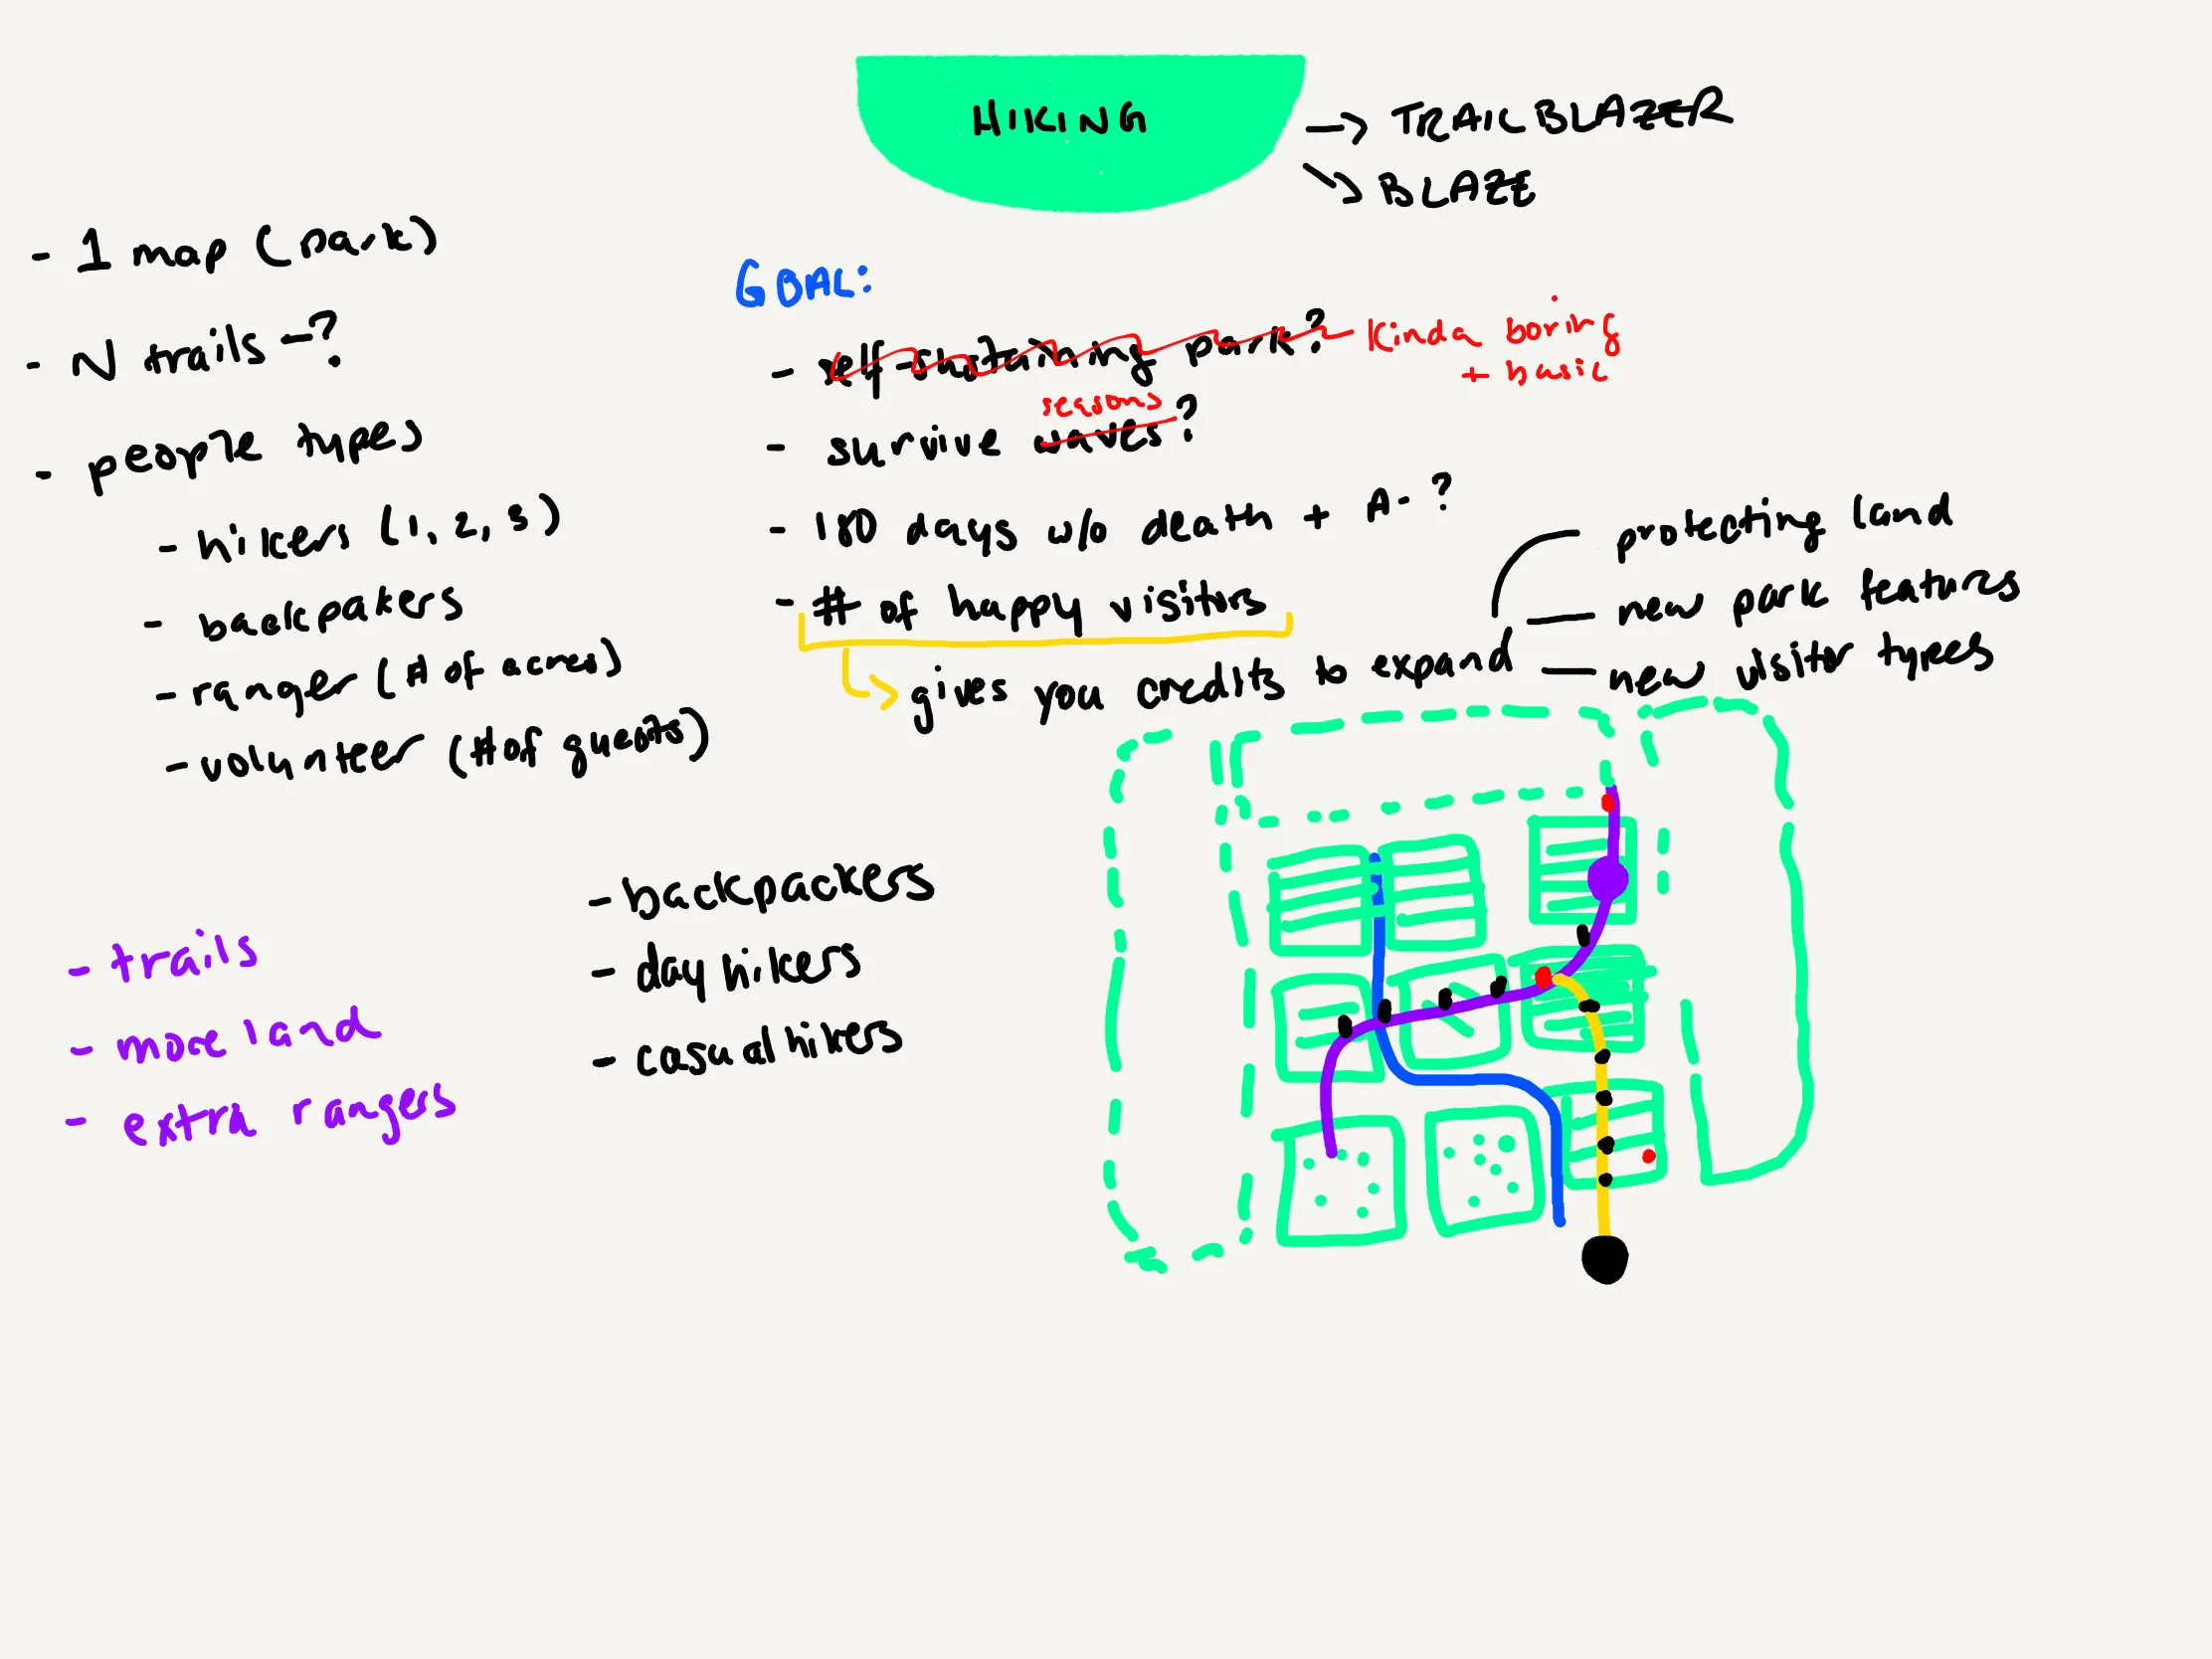 HIKING
-> TRAILBLAZER
-> BLAZE
- 1 map (park)
- N trails -?
- people types
- hikers (1, 2, 3)
- backpakers
- ranger (# of acres)
- volunteer (# of guests)
GOAL:
- self-sustaining park? Kinda boring
+ basic
seasons
- survive waves?
- 180 days w/o death + A- ?
- # of happy visitors
-> gives you credits to expand
protecting land
new park features
new visitor types
- backpackers
- day hikers
- casual hikers
- trails
- more land
- extra rangers